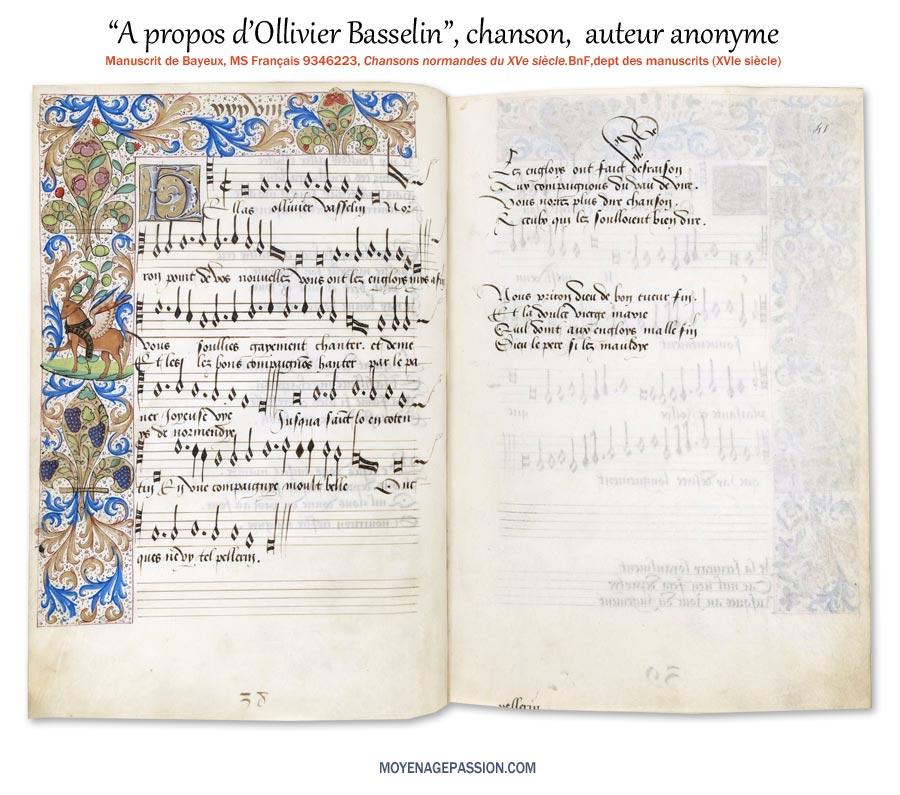 “A propos d’Ollivier Basselin”, chanson, auteur anonyme
Manuscrit de Bayeux, MS Français 9346223, Chansons normandes du XVe siècle.BnF,dept des manuscrits (XVIe siècle)
Hellas ollivier vasselin Nor
ron point de vos nouvelles vous ont lez engloys mys a fin
Vous soullies gayement chanter et deme
Et les lez bons compaignos hanter par le pa
ner Joyeuse vye Jusqua sainct lo en coten
ys de normendye
tin En une compaignye moult belle Onc
ques ne vy tel pellerin.
38
41
Lez engloys ont faict desraison
Aux compaignons du vau de vire.
Vous norrez plus dire chanson.
A ceulx qui les soulloient bien dire.
Nous priron dieu de bon cueur fin
Et la doulce vierge marie
Quil doint aux engloys malle fin
Dieu le pere si les mauldye
pellerin
MOYENAGEPASSION.COM